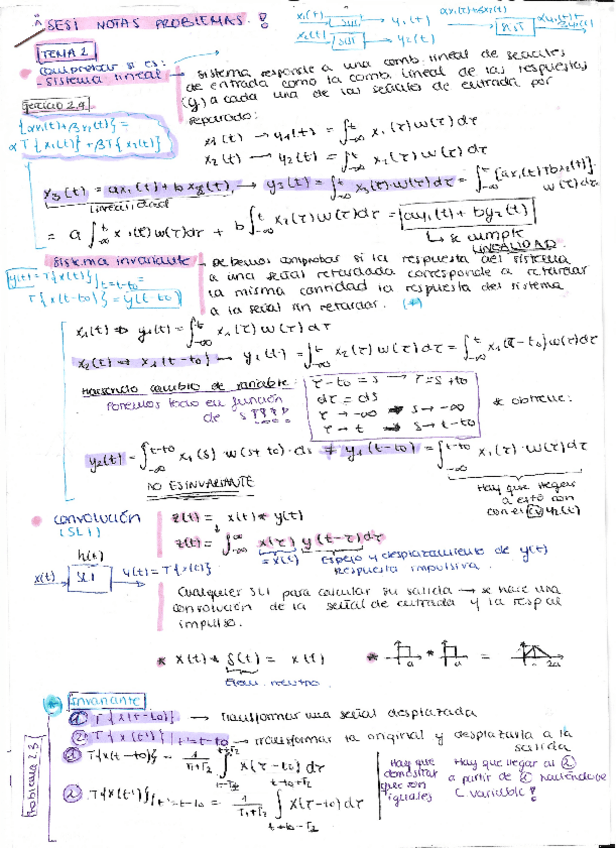 SESI NOTAS PROBLEMAS !
x1(t) → SLI → y1(t)
x2(t) → SLI → y2(t)
TEMA 2
Comprobar si es:
- Sistema lineal → Sistema responde a una comb. lineal de señales
de entrada como la comb. lineal de las respuestas
(y) a cada una de las señales de entrada por
separado:
Ejercicio 2.4
T{αx1(t)+βx2(t)} =
αT{x1(t)}+βT{x2(t)}
x1(t) → y1(t) = ∫_{-∞}^{t} x1(τ) w(τ) dτ
x2(t) → y2(t) = ∫_{-∞}^{t} x2(τ) w(τ) dτ
x3(t) = ax1(t) + bx2(t) → y3(t) = ∫_{-∞}^{t} x3(τ)·w(τ)dτ = ∫_{-∞}^{t} [ax1(τ)+bx2(τ)]· w(τ)dτ
linealidad
= a ∫_{-∞}^{t} x1(τ) w(τ)dτ + b ∫_{-∞}^{t} x2(τ) w(τ)dτ = ay1(t) + by2(t)
↳ se cumple
LINEALIDAD
Sistema invariante → Debemos comprobar si la respuesta del sistema
a una señal retardada corresponde a retardar
la misma cantidad la respuesta del sistema
a la señal sin retardar. (*)
T{x(t-to)} = y(t-to)
x1(t) ⇒ y1(t) = ∫_{-∞}^{t} x1(τ) w(τ) dτ
x2(t) ⇒ x1(t-to) → y2(t) = ∫_{-∞}^{t} x2(τ) w(τ)dτ = ∫_{-∞}^{t} x1(τ-to) w(τ)dτ
Haciendo cambio de variable:
Ponemos todo en función
de s
τ - to = s → τ = s + to
dτ = ds
τ → -∞ ⇒ s → -∞
τ → t ⇒ s → t-to
se obtiene:
y2(t) = ∫_{-∞}^{t-to} x1(s) · w(s+to) · ds ≠ y1(t-to) = ∫_{-∞}^{t-to} x1(τ)·w(τ)dτ
NO ES INVARIANTE
Hay que llegar
a esto con
y2(t)
Convolución
(SLI)
z(t) = x(t) * y(t)
z(t) = ∫_{-∞}^{∞} x(τ) y(t-τ)dτ
= x(t)
Espejo y desplazamiento de y(t)
Respuesta impulsiva.
h(t)
x(t) → SLI → y(t) = T{x(t)}
Cualquier SLI para calcular su salida → se hace una
convolución de la señal de entrada y la resp al
impulso.
* x(t) * δ(t) = x(t)
elem. neutro
a * a = 2a
Invariante
Problema 2.3
① T{x(t-to)} → Transformar una señal desplazada
② T{x(t')}|t'=t-to → Transformar la original y desplazarla a la
salida
① T{x(t-to)} = 1/(T1+T2) ∫_{t-T1}^{t+T2} x(τ-to) dτ
② T{x(t')}|t'=t-to = 1/(T1+T2) ∫ x(τ-to) dτ
Hay que
demostrar
que son
iguales
Hay que llegar al ②
a partir de ① haciendo
C variable!